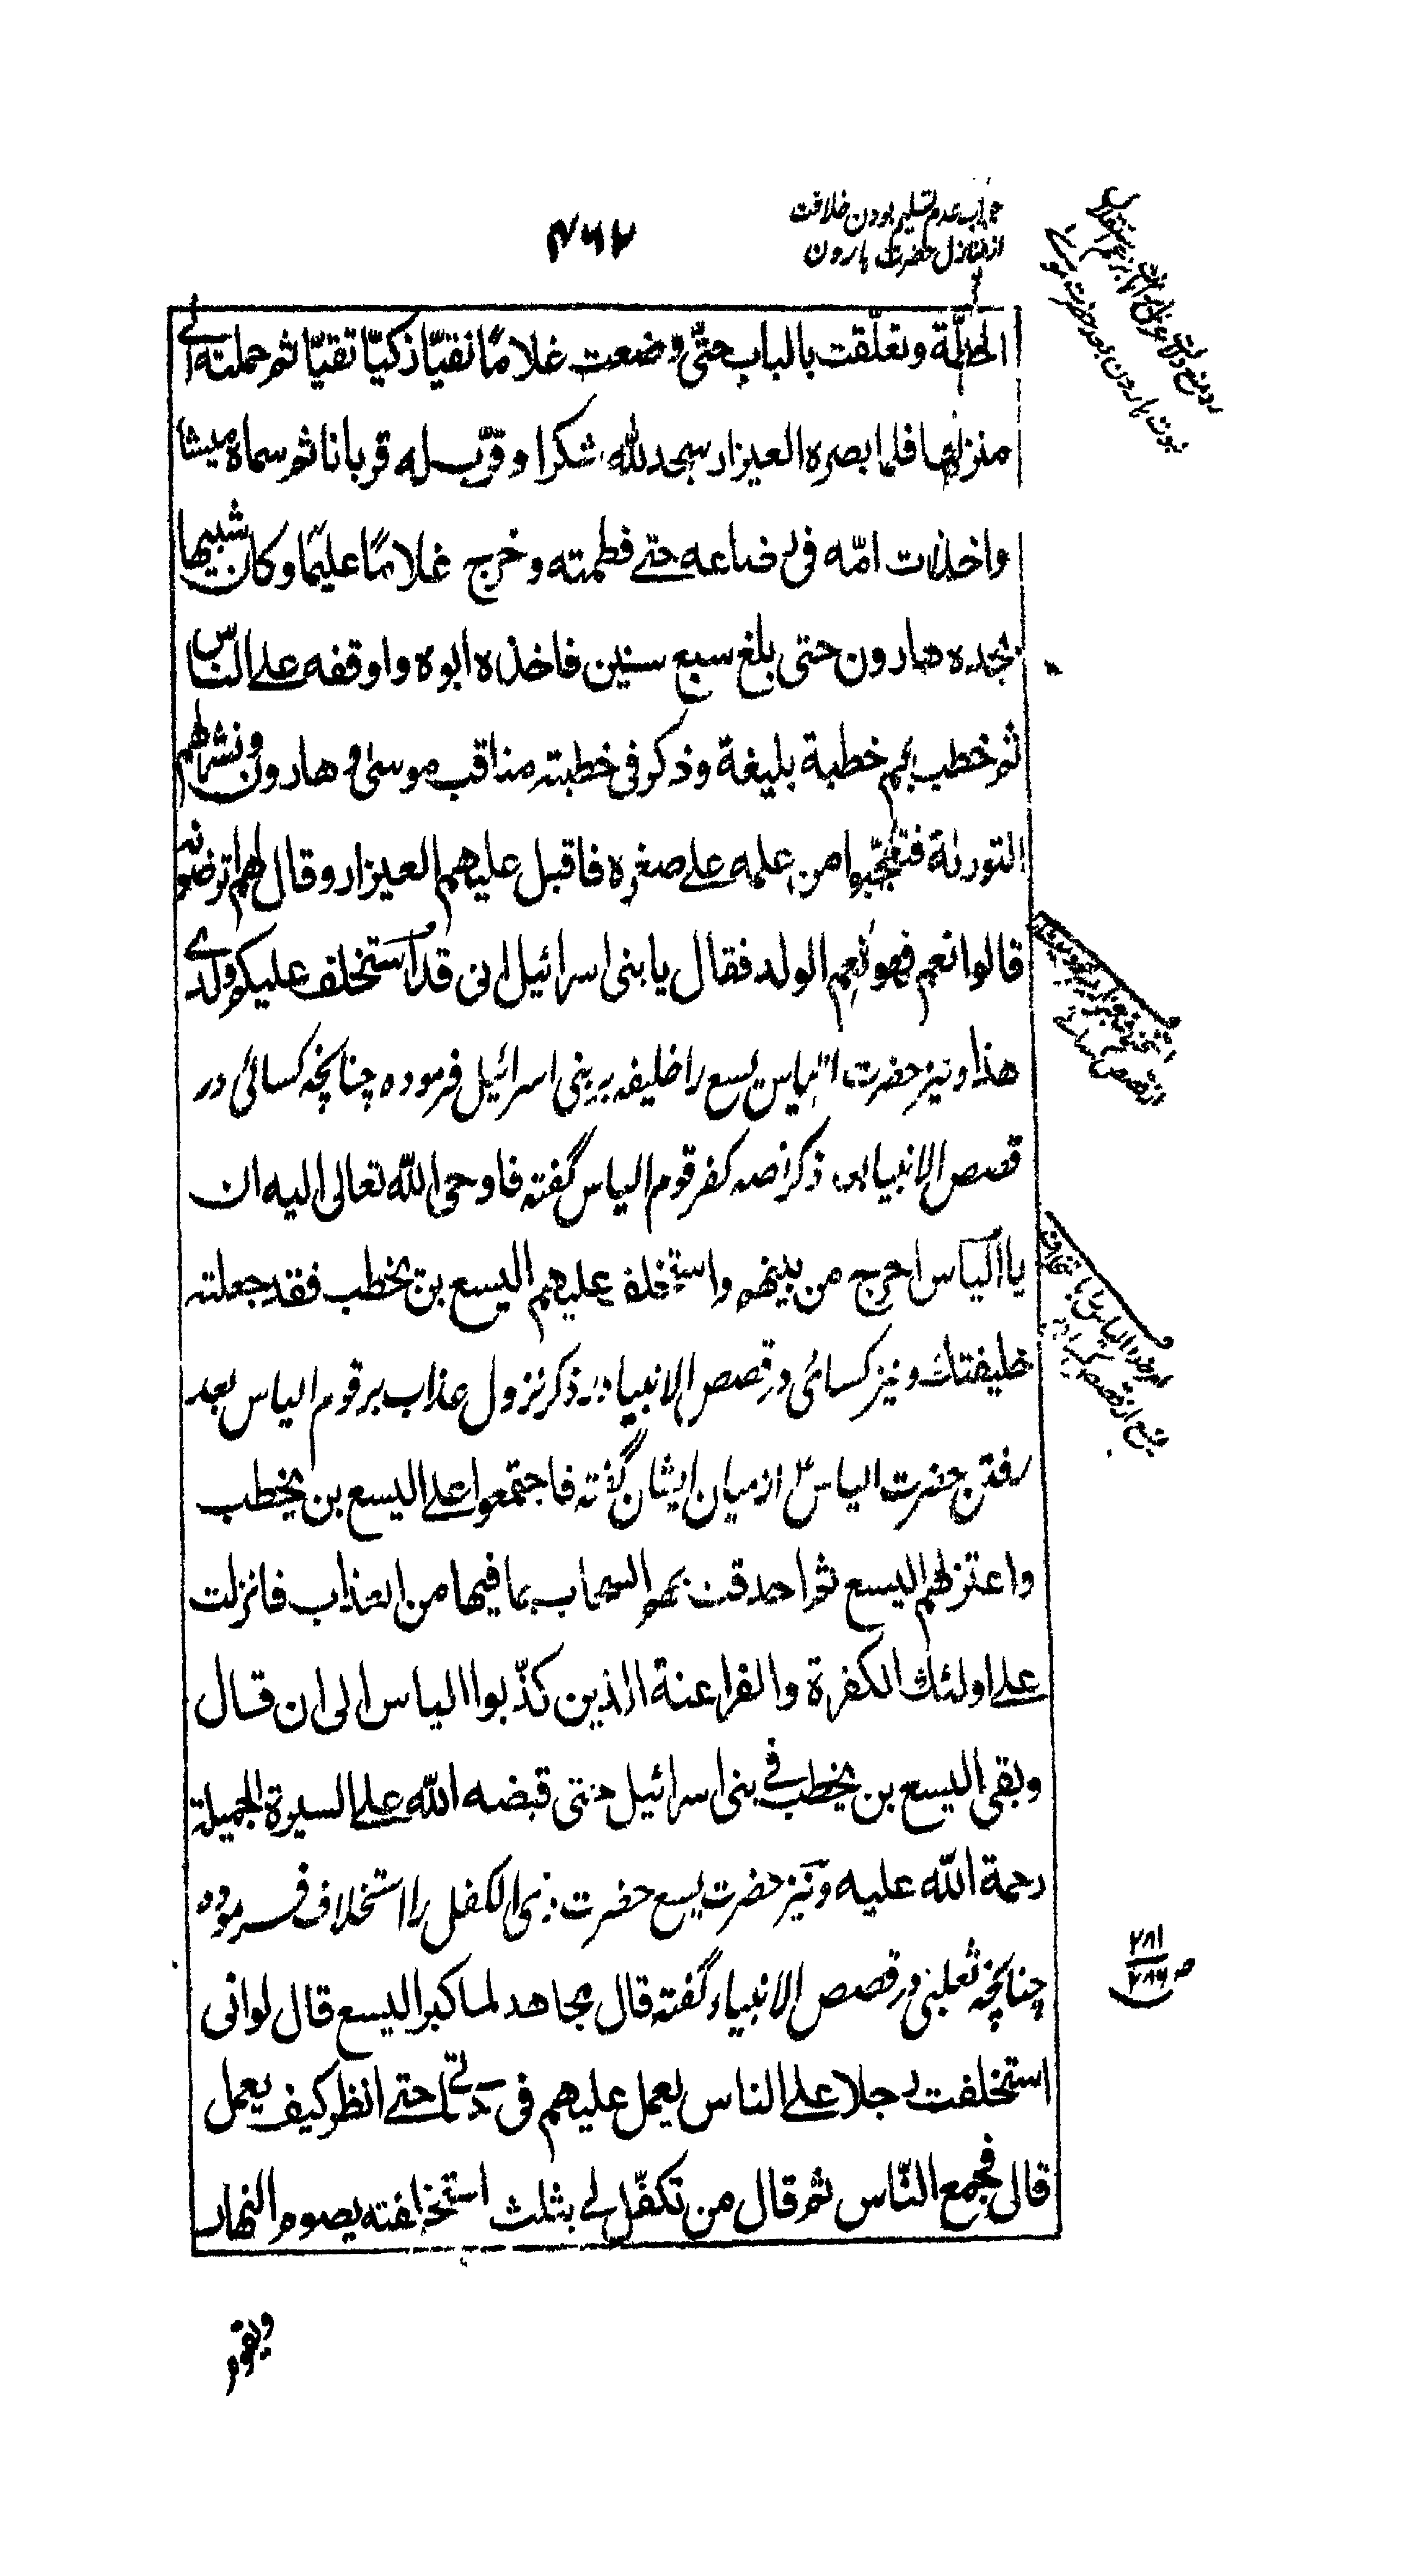 جواب عدم تسلیم بودن خلافت
از منازل حضرت هارون
۴۶۲
الحطّة وتعلّقت بالباب حتّى وضعت غلامًا نقيًّا زكيًّا تقيًّا ثم حملته الى
منزلها فلما ابصره العيزار سجد لله شكرا وقرّب له قربانا ثم سماه ميشا
واخذت امّه فى رضاعه حتى فطمته وخرج غلامًا عليمًا وكان شبيها
بجده هارون حتى بلغ سبع سنين فاخذه ابوه واوقفه على الناس
ثم خطب بهم خطبة بليغة وذكر فى خطبته مناقب موسى و هارون ونشر لهم
التورىة فتعجّبوا من علمه على صغره فاقبل عليهم العيزار وقال لهم اترضونه
قالوا نعم فهو نعم الولد فقال يا بنى اسرائيل انى قد استخلف عليكم ولدى
هذا ونیز حضرت الیاس یسع را خلیفه بر بنی اسرائیل فرموده چنانچه کسائی در
قصص الانبیا در ذکر قصه کفر قوم الیاس گفته فاوحى الله تعالى اليه ان
يا الياس اخرج من بينهم واستخلف عليهم اليسع بن يخطب فقد جعلته
خليفتك ونیز کسائی در قصص الانبیا در ذکر نزول عذاب بر قوم الیاس بعد
رفتن حضرت الیاس از میان ایشان گفته فاجتمعوا على اليسع بن يخطب
واعتزلهم اليسع ثم احدقت بهم السحاب بما فيها من العذاب فانزلت
على اولئك الكفرة والفراعنة الذين كذّبوا الياس الى ان قال
وبقى اليسع بن يخطب فى بنى اسرائيل حتى قبضه الله على السيرة الجميلة
رحمة الله عليه ونیز حضرت یسع حضرت ذی الکفل را استخلاف فرموده
چنانچه ثعلبی در قصص الانبیاء گفته قال مجاهد لما كبر اليسع قال لو انى
استخلفت رجلا على الناس يعمل عليهم فى حياتى حتى انظر كيف يعمل
قال فجمع النّاس ثم قال من تكفّل لى بثلث استخلفته يصوم النهار
ص ۲۸۱
ويقوم